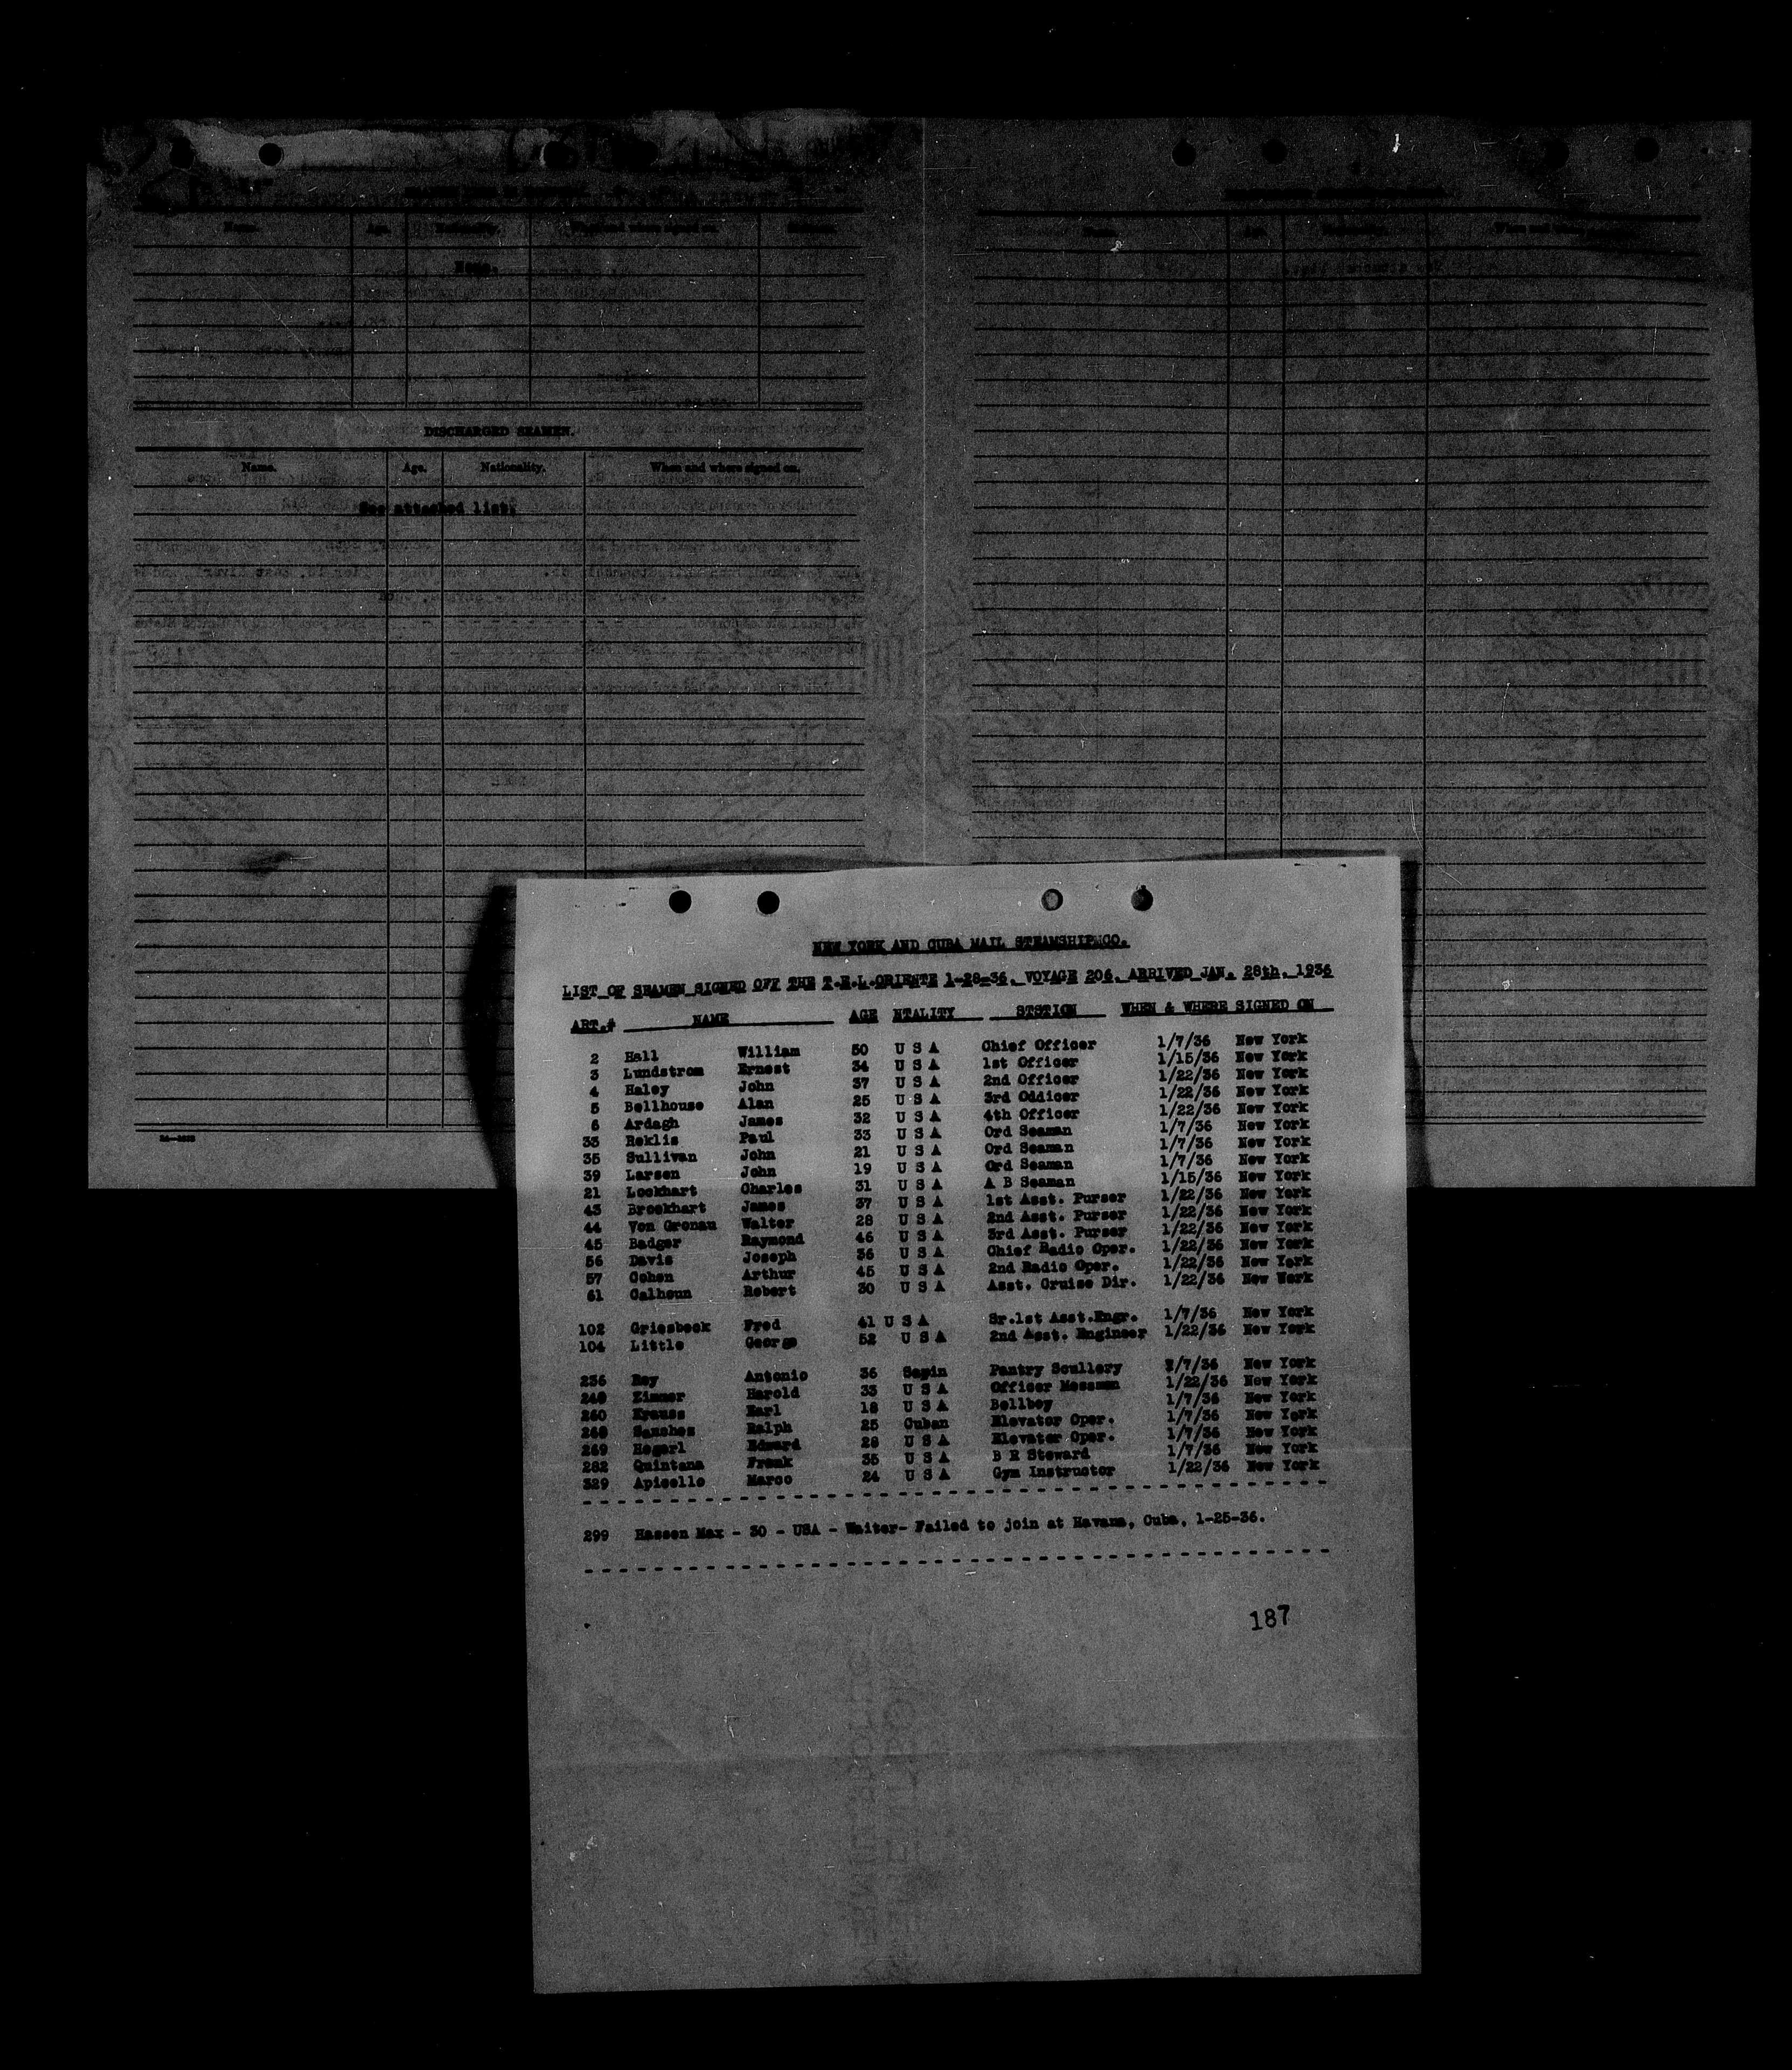 Name. Age. Nationality.
None.
DISCHARGED SEAMEN.
Name. Age. Nationality. When and where signed on.
See attached list.
NEW YORK AND CUBA MAIL STEAMSHIP CO.
LIST OF SEAMEN SIGNED OFF THE T.E.L.ORIENTE 1-28-36. VOYAGE 206. ARRIVED JAN. 28th. 1936
ART.# NAME AGE NTALITY STSTION WHEN & WHERE SIGNED ON
2 Hall William 50 U S A Chief Officer 1/7/36 New York
3 Lundstrom Ernest 34 U S A 1st Officer 1/15/36 New York
4 Haley John 37 U S A 2nd Officer 1/22/36 New York
5 Bellhouse Alan 25 U S A 3rd Oddicer 1/22/36 New York
6 Ardagh James 32 U S A 4th Officer 1/22/36 New York
33 Reklis Paul 33 U S A Ord Seaman 1/7/36 New York
35 Sullivan John 21 U S A Ord Seaman 1/7/36 New York
39 Larsen John 19 U S A Ord Seaman 1/7/36 New York
21 Lockhart Charles 31 U S A A B Seaman 1/15/36 New York
43 Brockhart James 37 U S A 1st Asst. Purser 1/22/36 New York
44 Von Gronau Walter 28 U S A 2nd Asst. Purser 1/22/36 New York
45 Badger Raymond 46 U S A 3rd Asst. Purser 1/22/36 New York
56 Davis Joseph 36 U S A Chief Radio Oper. 1/22/36 New York
57 Cohen Arthur 45 U S A 2nd Radio Oper. 1/22/36 New York
61 Calhoun Robert 30 U S A Asst. Cruise Dir. 1/22/36 New Work
102 Griesbeck Fred 41 U S A Sr.1st Asst.Engr. 1/7/36 New York
104 Little George 52 U S A 2nd Asst. Engineer 1/22/36 New York
236 Rey Antonio 36 Sapin Pantry Scullery 1/7/36 New York
248 Zimmer Harold 33 U S A Officer Messman 1/22/36 New York
260 Krauss Earl 18 U S A Bellboy 1/7/36 New York
268 Sanches Ralph 25 Cuban Elevator Oper. 1/7/36 New York
269 Hegarl Edward 28 U S A Elevator Oper. 1/7/36 New York
282 Quintana Frank 35 U S A B R Steward 1/7/36 New York
329 Apicello Marco 24 U S A Gym Instructor 1/22/36 New York
299 Hassen Max - 30 - USA - Waiter- Failed to join at Havana, Cuba, 1-25-36.
187